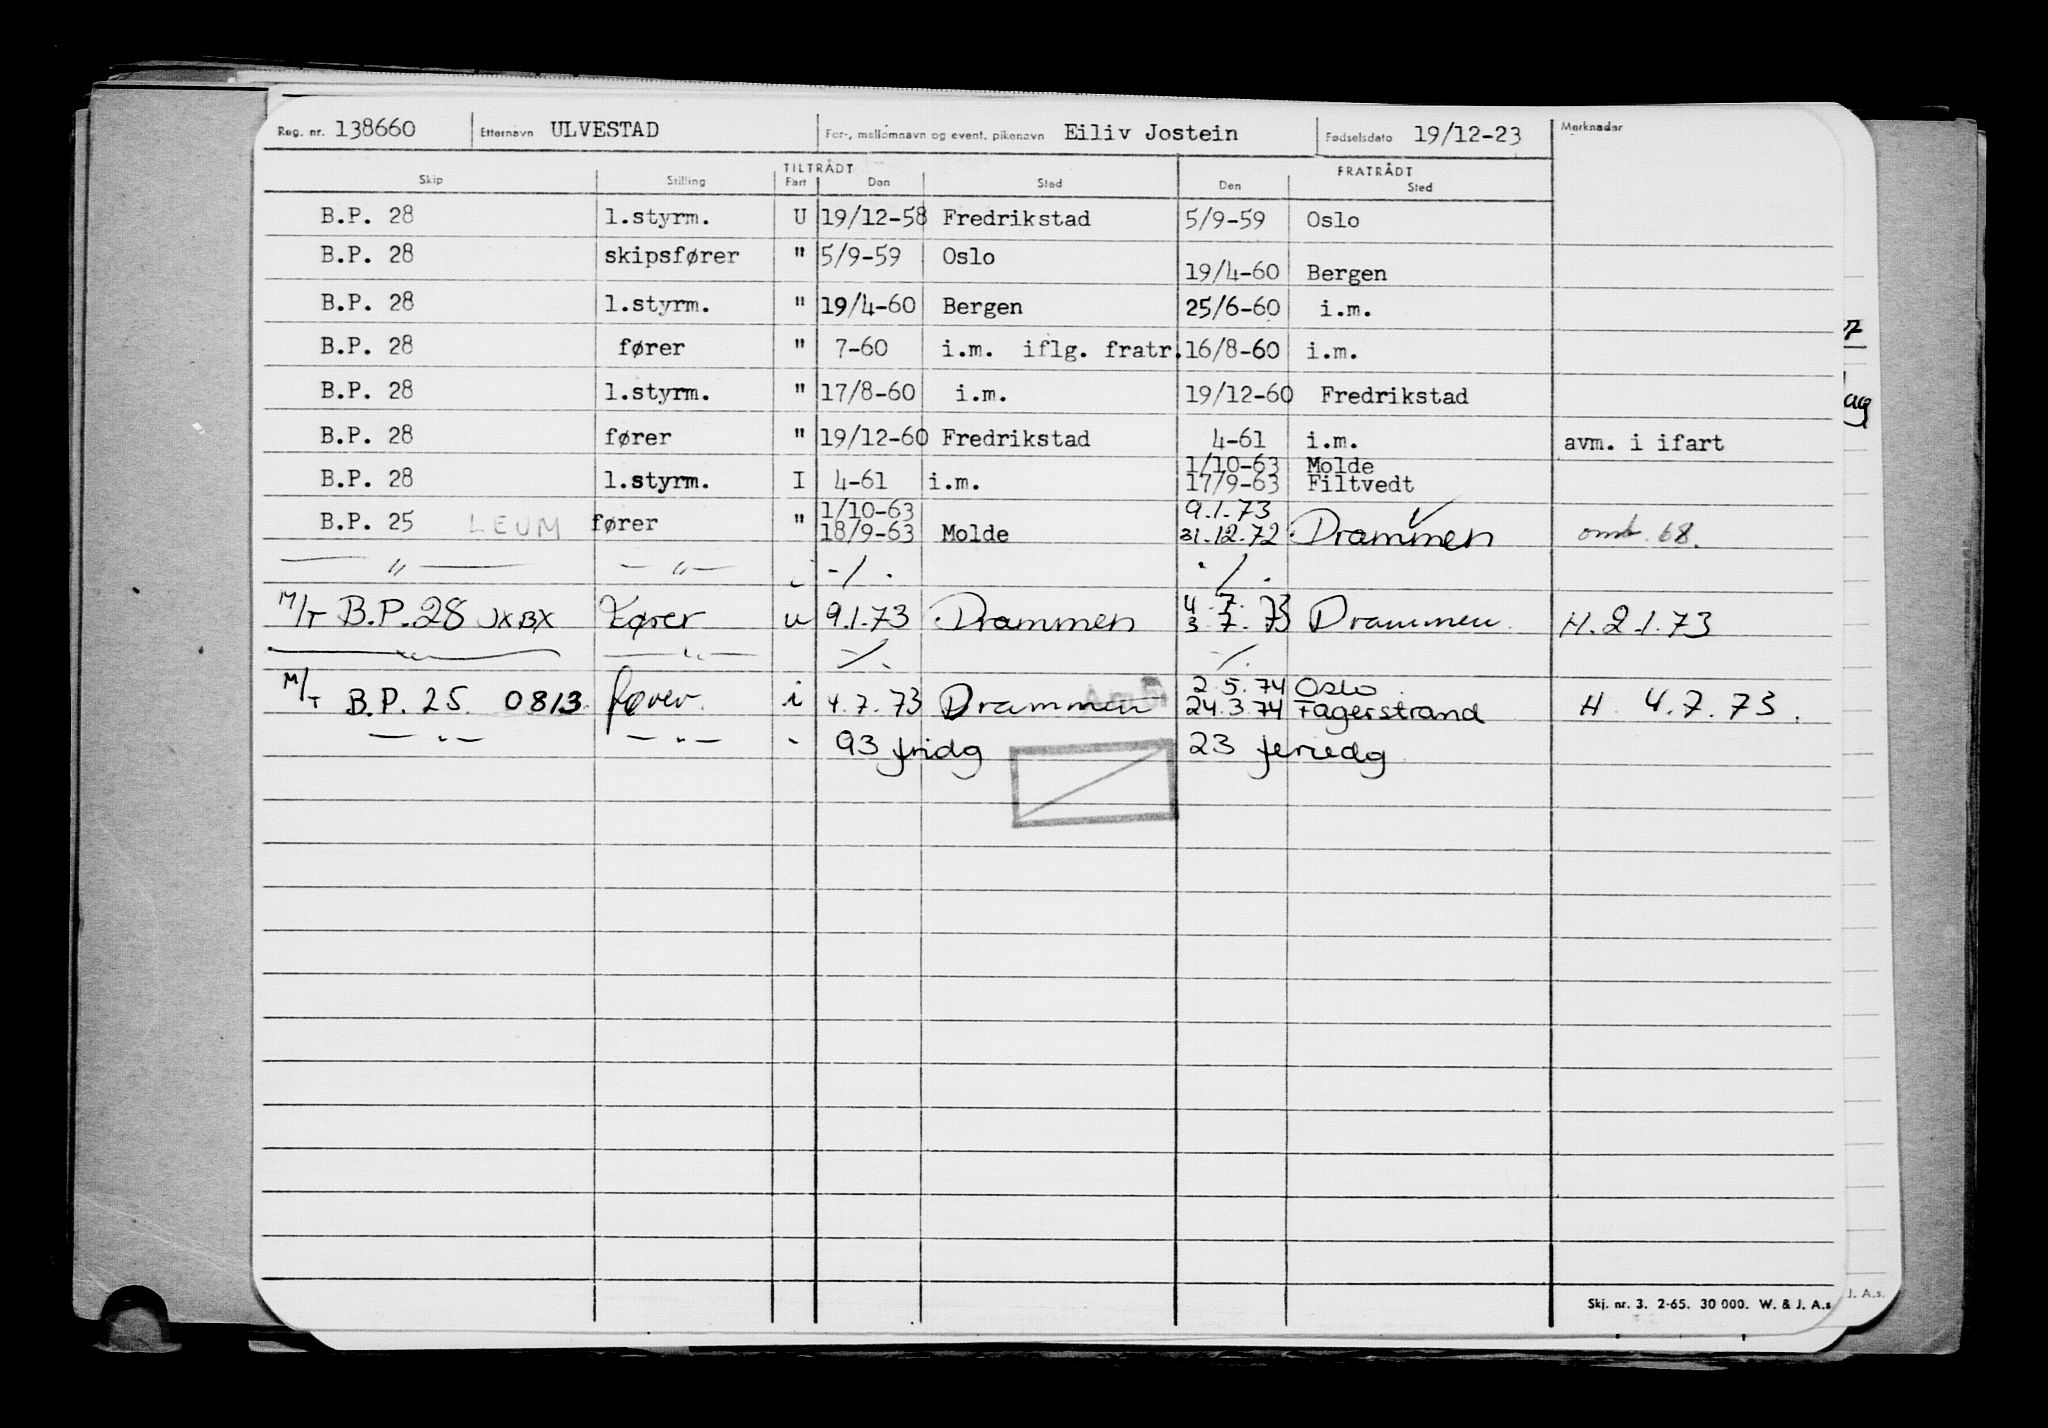 Reg. nr. 138660 Etternavn ULVESTAD For-, mellomnavn og event. pikenavn Eiliv Jostein Fødselsdato 19/12-23 Merknader
TILTRÅDT FRATRÅDT
Skip Stilling Fart Den Sted Den Sted
B.P. 28 1.styrm. U 19/12-58 Fredrikstad 5/9-59 Oslo
B.P. 28 skipsfører " 5/9-59 Oslo 19/4-60 Bergen
B.P. 28 1.styrm. " 19/4-60 Bergen 25/6-60 i.m.
B.P. 28 fører " 7-60 i.m. iflg. fratr. 16/8-60 i.m.
B.P. 28 1.styrm. " 17/8-60 i.m. 19/12-60 Fredrikstad
B.P. 28 fører " 19/12-60 Fredrikstad 4-61 i.m. avm. i ifart
1/10-63 Molde
B.P. 28 1.styrm. I 4-61 i.m. 17/9-63 Filtvedt
1/10-63 9.1.73
B.P. 25 LEUM fører " 18/9-63 Molde 31.12.72 Drammen omb. 68.
— " — — " — i -/. ./.
4.7.73
M/T B.P. 28 JXBX Fører u 9.1.73 Drammen 3.7.73 Drammen H. 2.1.73
— " — — " — -/. -/.
2.5.74 Oslo
M/T B.P. 25. 0813 fører. i 4.7.73 Drammen 24.3.74 Fagerstrand H 4.7.73.
— " — — " — - 93 fridg 23 feriedg
Skj. nr. 3. 2-65. 30 000. W. & J. A.s
J. A.s.